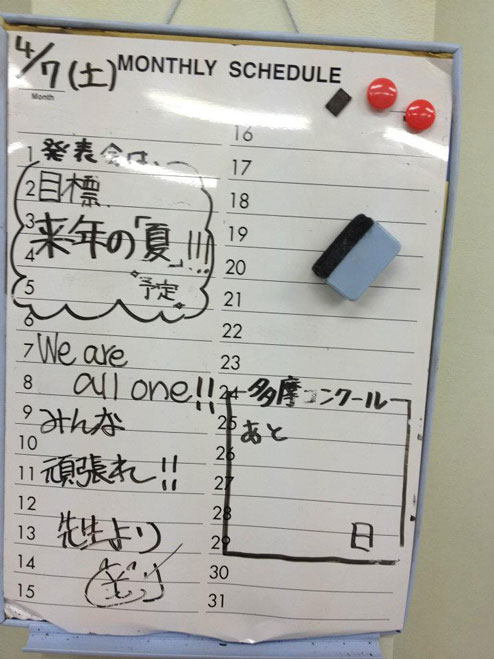 4/7(土)
MONTHLY SCHEDULE
Month
1 発表会は、
2 目標
3
来年の「夏」!!!
4
5 予定
6
7 We are
8 all one!!
9 みんな
10
11 頑張れ!!
12
13 先生より
14
15
16
17
18
19
20
21
22
23
24 多摩コンクール
25 あと
26
27
28
29 日
30
31